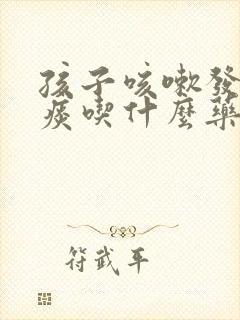 孩子咳嗽發
痰喫什麼藥
符武平